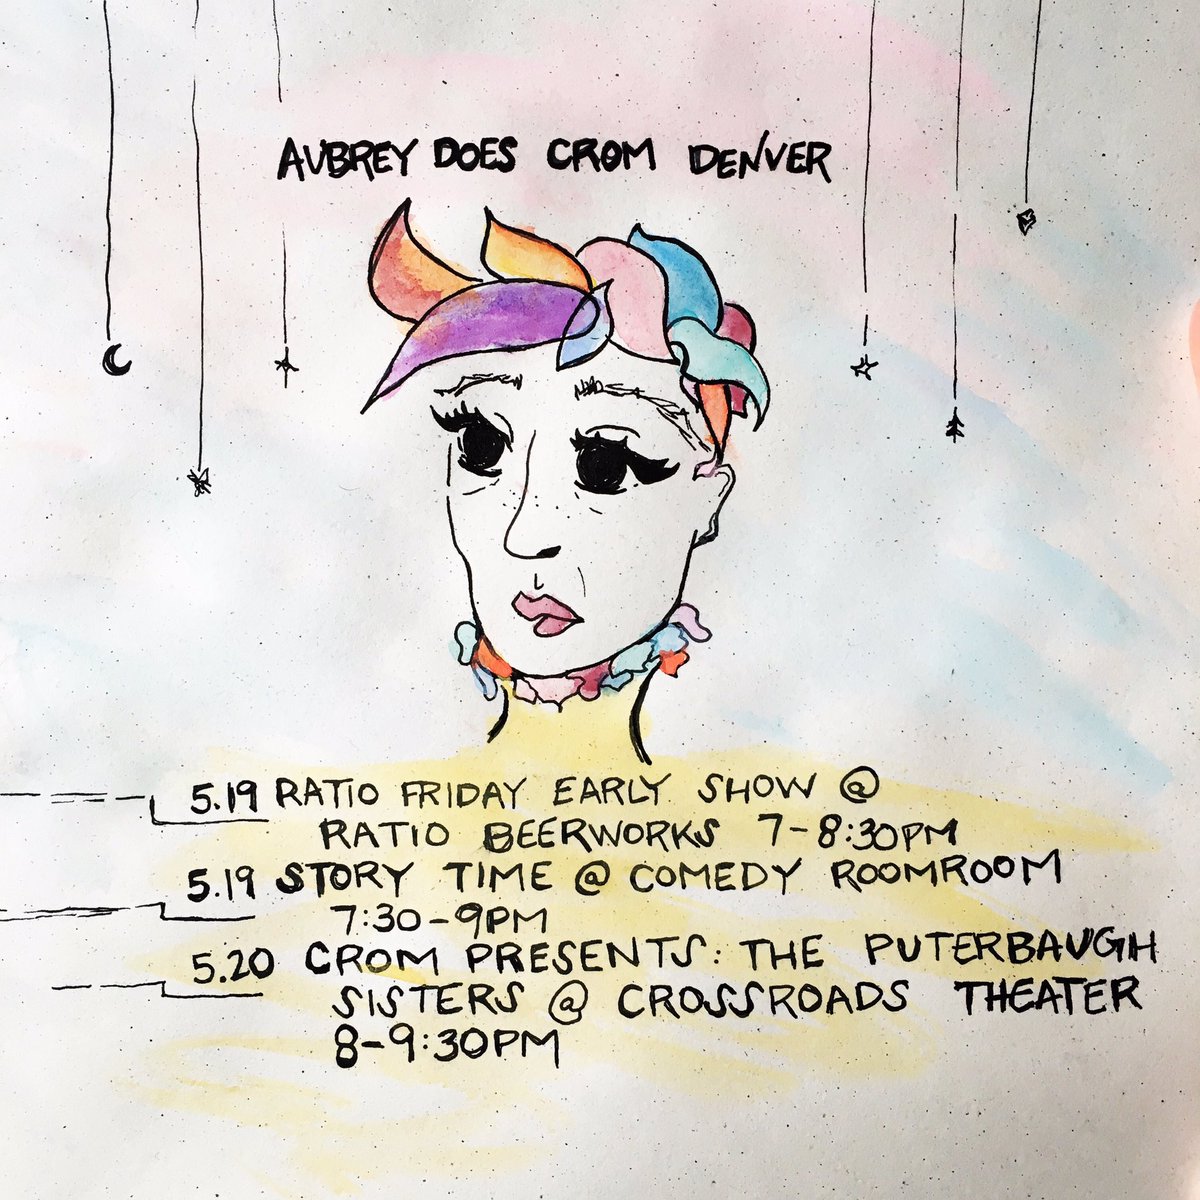 AUBREY DOES CROM DENVER
5.19 RATIO FRIDAY EARLY SHOW @
RATIO BEERWORKS 7-8:30PM
5.19 STORY TIME @ COMEDY ROOMROOM
7:30-9PM
5.20 CROM PRESENTS: THE PUTERBAUGH
SISTERS @ CROSSROADS THEATER
8-9:30PM